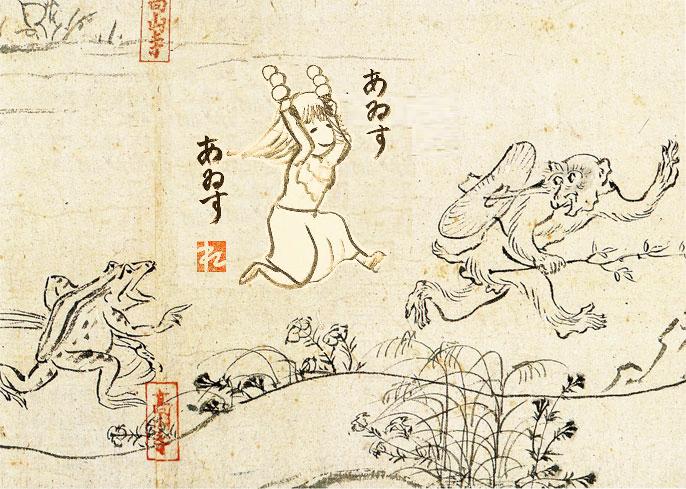 高山寺
あゐす
あゐす
れ
高山寺